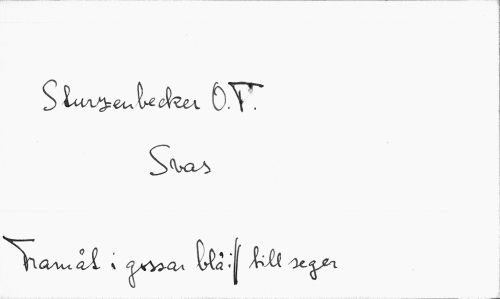 Sturzenbecker O.T.
Svas
Framåt i gossar blå :|| till seger